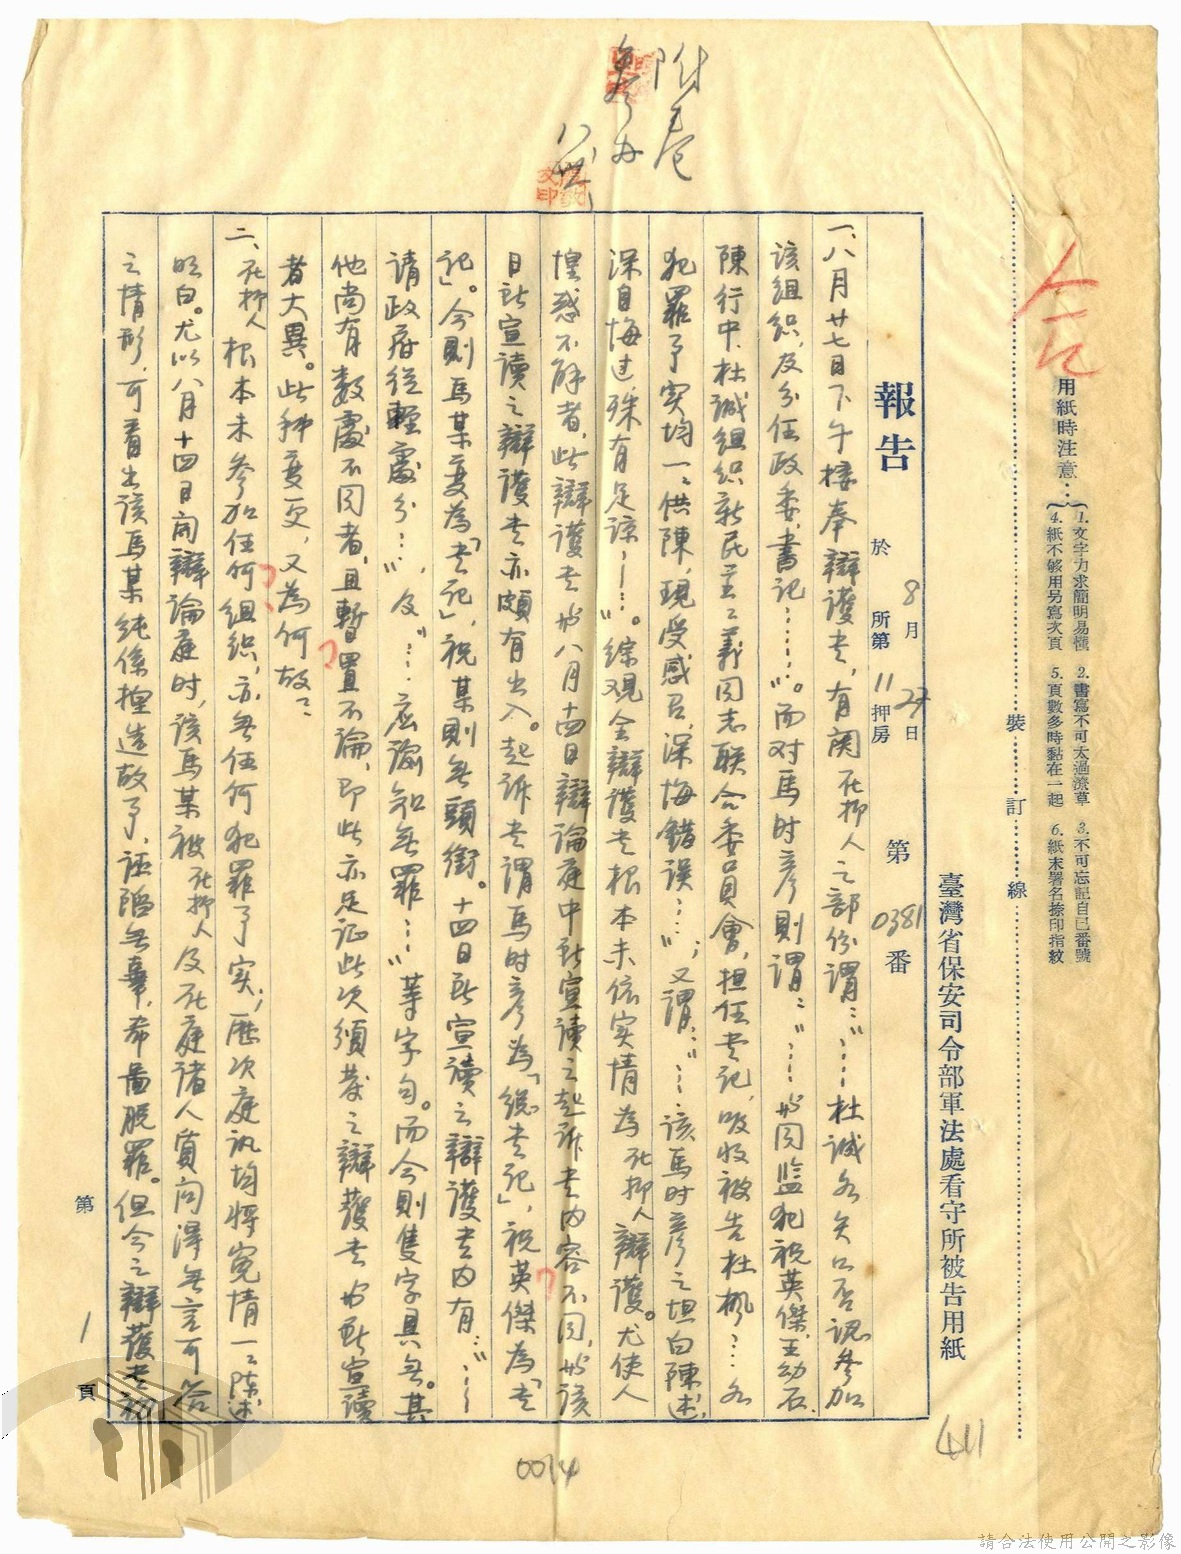 用紙時注意：
1.文字力求簡明易懂 2.書寫不可太過潦草 3.不可忘記自己番號
4.紙不够用另寫次頁 5.頁數多時黏在一起 6.紙末署名捺印指紋
裝訂線
臺灣省保安司令部軍法處看守所被告用紙
附卷
報告 於 8月27日 所第11押房 第0381番
一、八月廿七日下午接奉辯護書，有関在押人之部份謂：“……杜誠名矢口否認參加
該組織，及分任政委，書記……”。而对馬时彦則謂：“……與同監犯祝英傑，王幼石，
陳行中，杜誠組织新民主主義同志联合委員會，担任書記，吸收被告杜楓……名
犯罪事实均一一供陳，現受感召，深悔錯误……”，又謂：“……该馬时彦之坦白陳述，
深自悔过，殊有足諒……”。综观全辯護書根本未依实情為在押人辯護。尤使人
惶惑不解者，此辯護書與八月十四日辯論庭中所宣读之起诉書内容不同，與该
日所宣读之辯護書亦頗有出入。起诉書謂馬时彦為「總書記」，祝英傑為「書
記」。今則馬某变為「書記」，祝某則無頭銜。十四日所宣读之辯護書内有：“……
请政府從輕處分……”，及“……应諭知無罪……”等字句。而今則隻字具無。其
他尚有数處不同者，且暫置不論，即此亦足证此次頒發之辯護書與所宣讀
者大異。此种变更，又為何故？
二、在押人根本未參加任何组织，亦無任何犯罪事实，歷次庭訊均将冤情一一陈述
明白。尤以八月十四日開辯論庭时，该馬某被在押人及在庭诸人質问得無言可答
之情形，可看出该馬某純係捏造故事，誣陷無辜，希圖脱罪。但今之辯護書初
第1頁
411
0014
請合法使用公開之影像